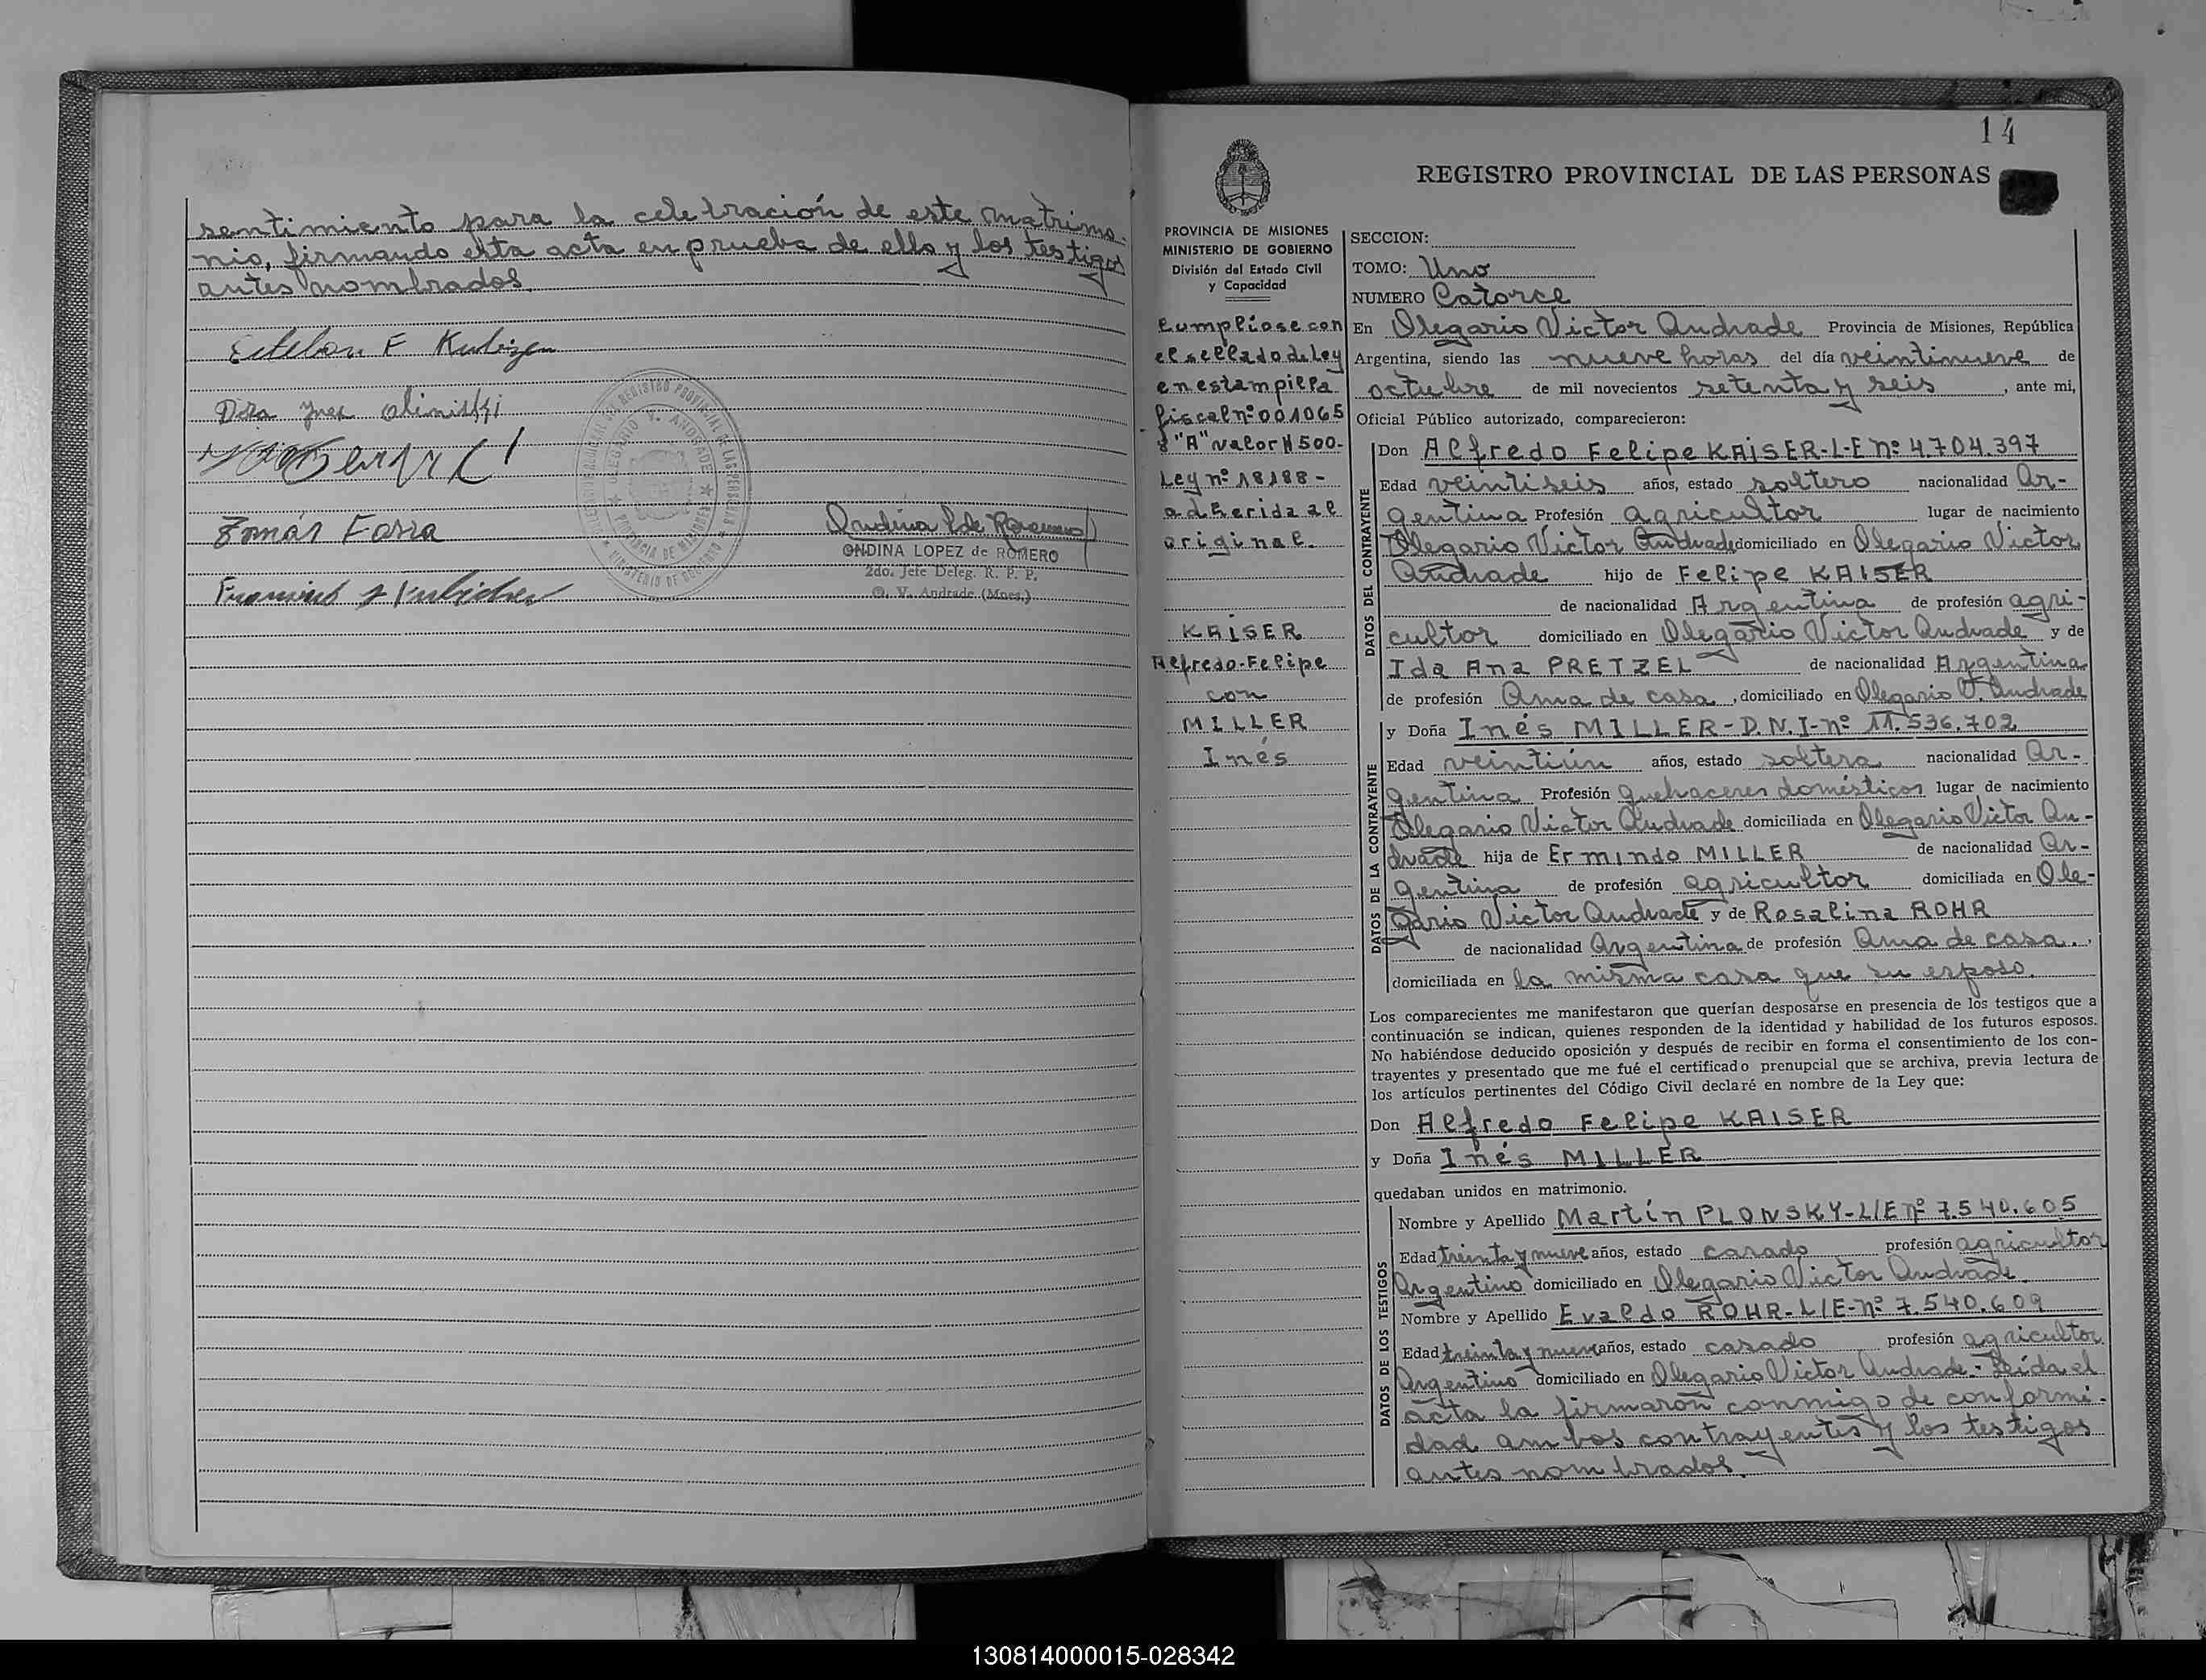 sentimiento para la celebración de este matrimo-
nio, firmando esta acta en prueba de ello y los testigos
antes nombrados.
Esteban F
Tomás
ONDINA LOPEZ de ROMERO
2do. Jefe Deleg. R. P. P.
O. V. Andrade (Mnes.)
14
REGISTRO PROVINCIAL DE LAS PERSONAS
PROVINCIA DE MISIONES
MINISTERIO DE GOBIERNO
División del Estado Civil
y Capacidad
Cumplíose con
el sellado de Ley
en estampilla
fiscal nº 001065
"A" valor $ 500-
Ley nº 18188-
adherida al
original.
KAISER
Alfredo-Felipe
con
MILLER
Inés
SECCION:
TOMO: Uno
NUMERO Catorce
En Olegario Victor Andrade Provincia de Misiones, República
Argentina, siendo las nueve horas del día veintinueve de
octubre de mil novecientos setenta y seis, ante mi,
Oficial Público autorizado, comparecieron:
DATOS DEL CONTRAYENTE
Don Alfredo Felipe KAISER-L-E nº 4.704.397
Edad veintiseis años, estado soltero nacionalidad Ar-
gentina Profesión agricultor lugar de nacimiento
Olegario Victor Andrade domiciliado en Olegario Victor
Andrade hijo de Felipe KAISER
de nacionalidad Argentina de profesión agri-
cultor domiciliado en Olegario Victor Andrade y de
Ida Ana PRETZEL de nacionalidad Argentina
de profesión Ama de casa, domiciliado en Olegario V. Andrade
DATOS DE LA CONTRAYENTE
y Doña Inés MILLER-D.N.I-nº 11.536.702
Edad veintiún años, estado soltera nacionalidad Ar-
gentina Profesión Quehaceres domésticos lugar de nacimiento
Olegario Victor Andrade domiciliada en Olegario Victor An-
drade hija de Ermindo MILLER de nacionalidad Ar-
gentina de profesión agricultor domiciliada en Ole-
gario Victor Andrade y de Rosalina ROHR
de nacionalidad Argentina de profesión Ama de casa.,
domiciliada en la misma casa que su esposo.
Los comparecientes me manifestaron que querían desposarse en presencia de los testigos que a
continuación se indican, quienes responden de la identidad y habilidad de los futuros esposos.
No habiéndose deducido oposición y después de recibir en forma el consentimiento de los con-
trayentes y presentado que me fué el certificado prenupcial que se archiva, previa lectura de
los artículos pertinentes del Código Civil declaré en nombre de la Ley que:
Don Alfredo Felipe KAISER
y Doña Inés MILLER
quedaban unidos en matrimonio.
DATOS DE LOS TESTIGOS
Nombre y Apellido Martín PLONSKY-L/E nº 7.540.605
Edad treinta y nueve años, estado casado profesión agricultor
Argentino domiciliado en Olegario Victor Andrade.
Nombre y Apellido Evaldo ROHR-L/E-nº 7.540.609
Edad treinta y nueve años, estado casado profesión agricultor
Argentino domiciliado en Olegario Victor Andrade.- Leída el
acta la firmaron conmigo de conformi-
dad ambos contrayentes y los testigos
antes nombrados.
130814000015-028342